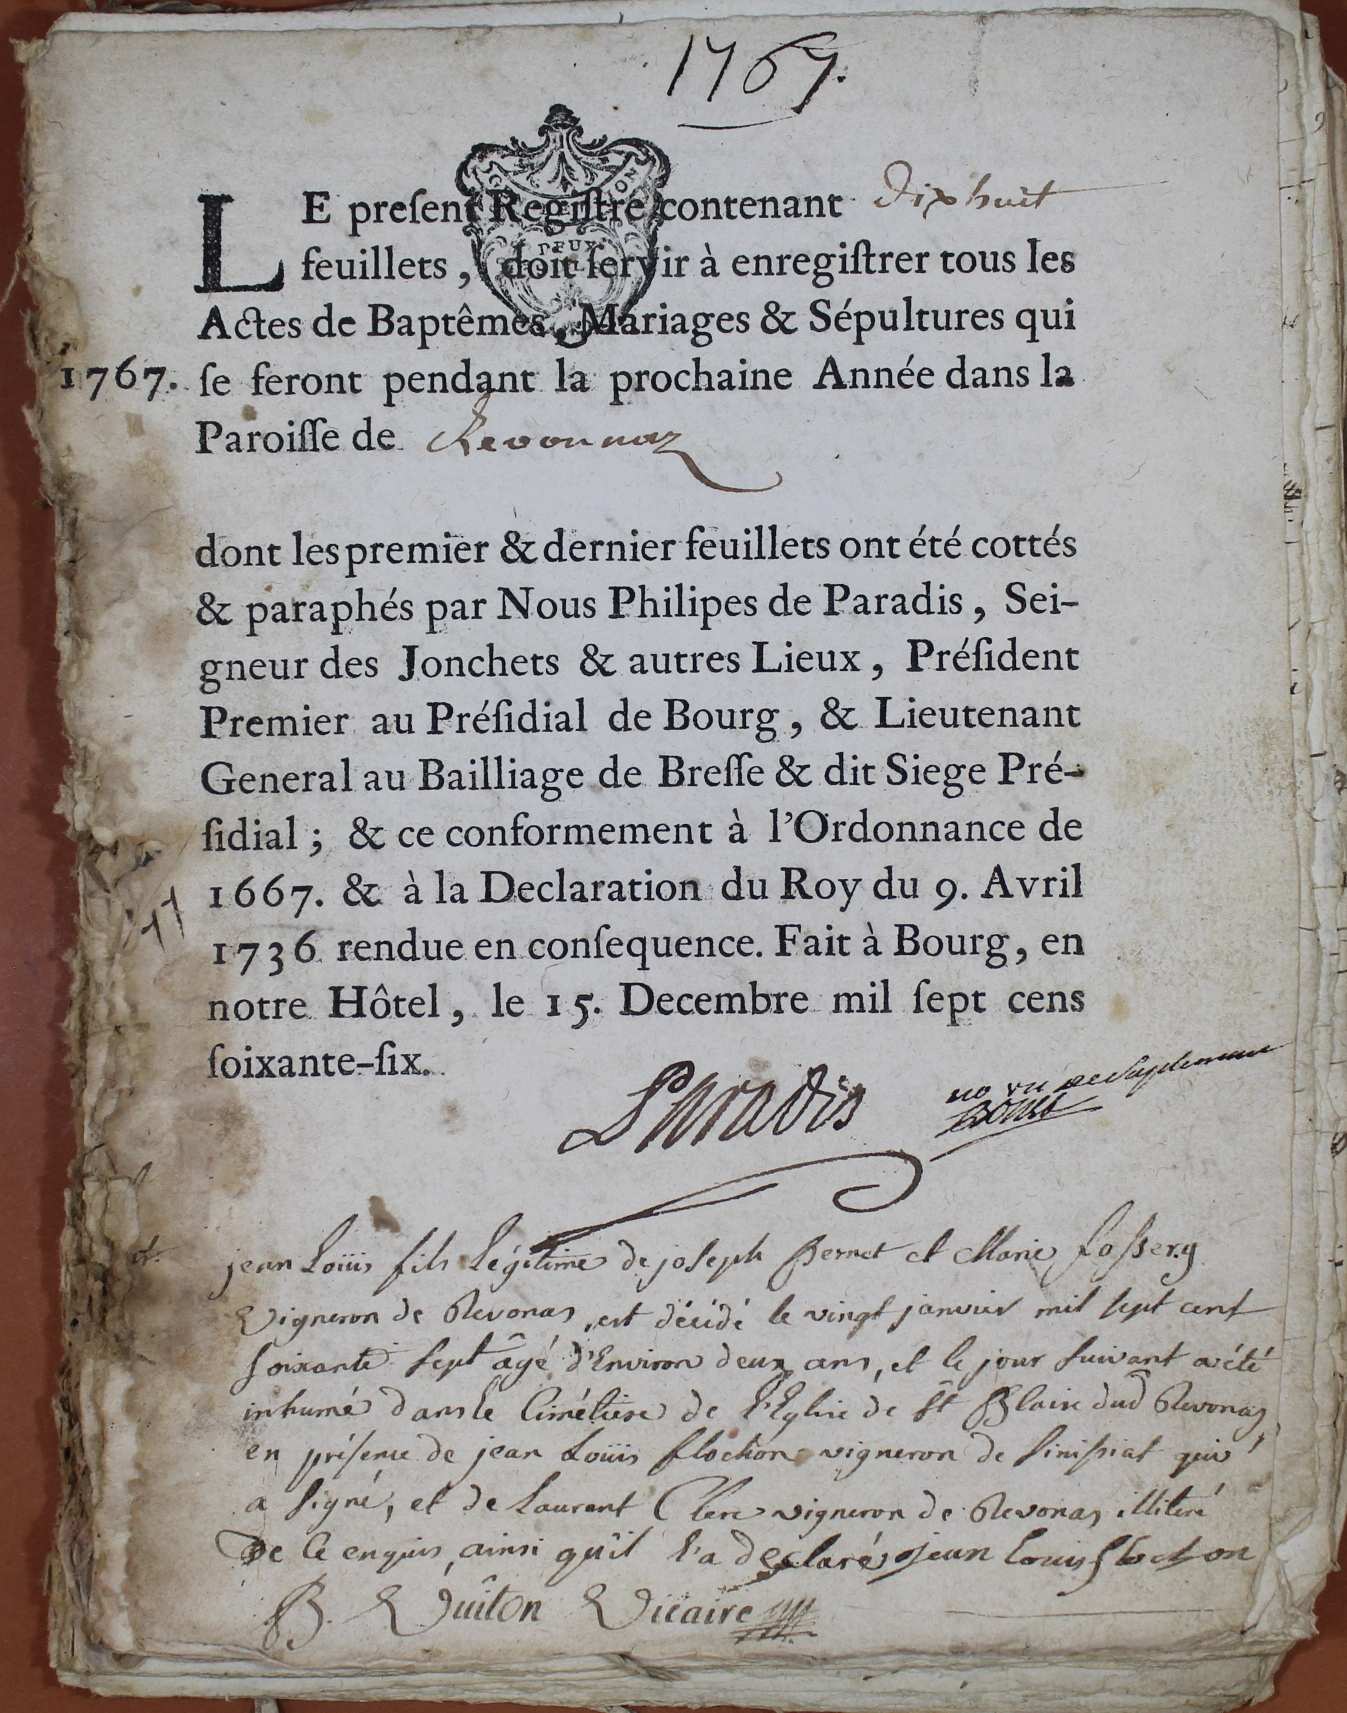 1767.
LE preſent Regiſtre contenant Dix huit
feuillets, doit ſervir à enregiſtrer tous les
Actes de Baptêmes, Mariages & Sépultures qui
1767. ſe feront pendant la prochaine Année dans la
Paroiſſe de Revonnaz
dont les premier & dernier feuillets ont été cottés
& paraphés par Nous Philipes de Paradis, Sei-
gneur des Jonchets & autres Lieux, Préſident
Premier au Préſidial de Bourg, & Lieutenant
General au Bailliage de Breſſe & dit Siege Pré-
ſidial; & ce conformement à l'Ordonnance de
1667. & à la Declaration du Roy du 9. Avril
1736 rendue en conſequence. Fait à Bourg, en
notre Hôtel, le 15. Decembre mil ſept cens
ſoixante-ſix.
Paradis
jean Loüis fils Légitime de joseph Bernet et Marie
Vigneron de Revonas, est décidé le vingt janvier mil sept cent
soixante sept âgé d'Environ deux ans, et le jour suivant a été
inhumé dans le Cimétiere de l'Eglise de St Blaise dud Revonas,
en présence de jean Loüis flochon vigneron de Simssiat qui
a signé, et de Laurent Clerc vigneron de Revonas illiteré
De Ce enquis, ainsi qu'il l'a déclaré, jean louis flochon
B. Vuiton Vicaire